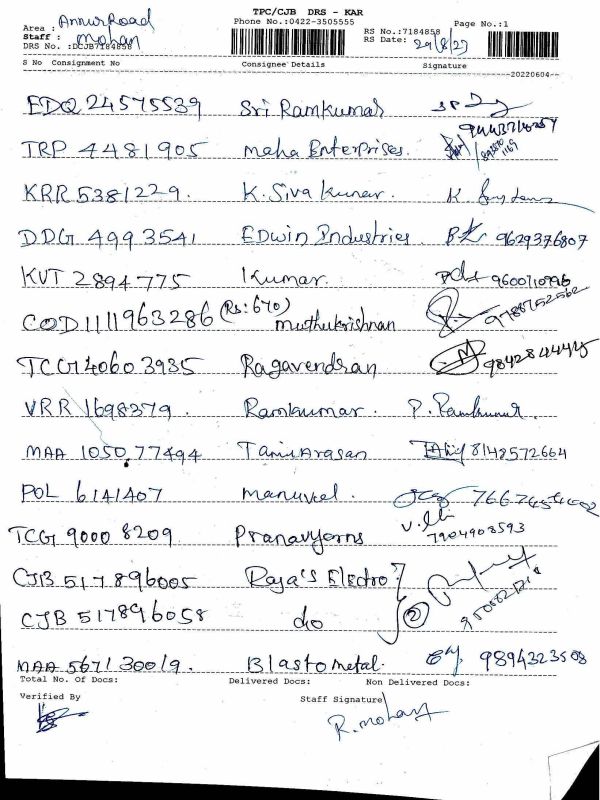 TPC/CJB DRS - KAR
Area : Annur Road Phone No.:0422-3505555 RS No.:7184858 Page No.:1
Staff : mohan RS Date: 29/8/27
DRS No. :DCJB7184858
S No Consignment No Consignee Details Signature
20220604
EDQ 24575539 Sri Ramkumar
9443740254
TRP 4481905 Maha Enterprises.
KRR 5381229. K. Siva kumar. K
DDG 4993541 Edwin Industries. 9629376807
KVT 2894775 Kumar. 9600710996
COD1111963286 (Rs: 670) muthukrishnan 9788752562
TCG14060 3935 Ragavendran
VRR 1698379. Ramkumar. P. Ramkumar.
MAA 1050 77494 Tamilarasan 8148572664
POL 6141407 manuvel.
TCG 9000 8209 Pranavyarns 7904903593
CJB 517896005 Raja's Electro
CJB 517896058 do 2
MAA 567130019. Blastometal. 9894323508
Total No. Of Docs: Delivered Docs: Non Delivered Docs:
Verified By Staff Signature
R. mohan